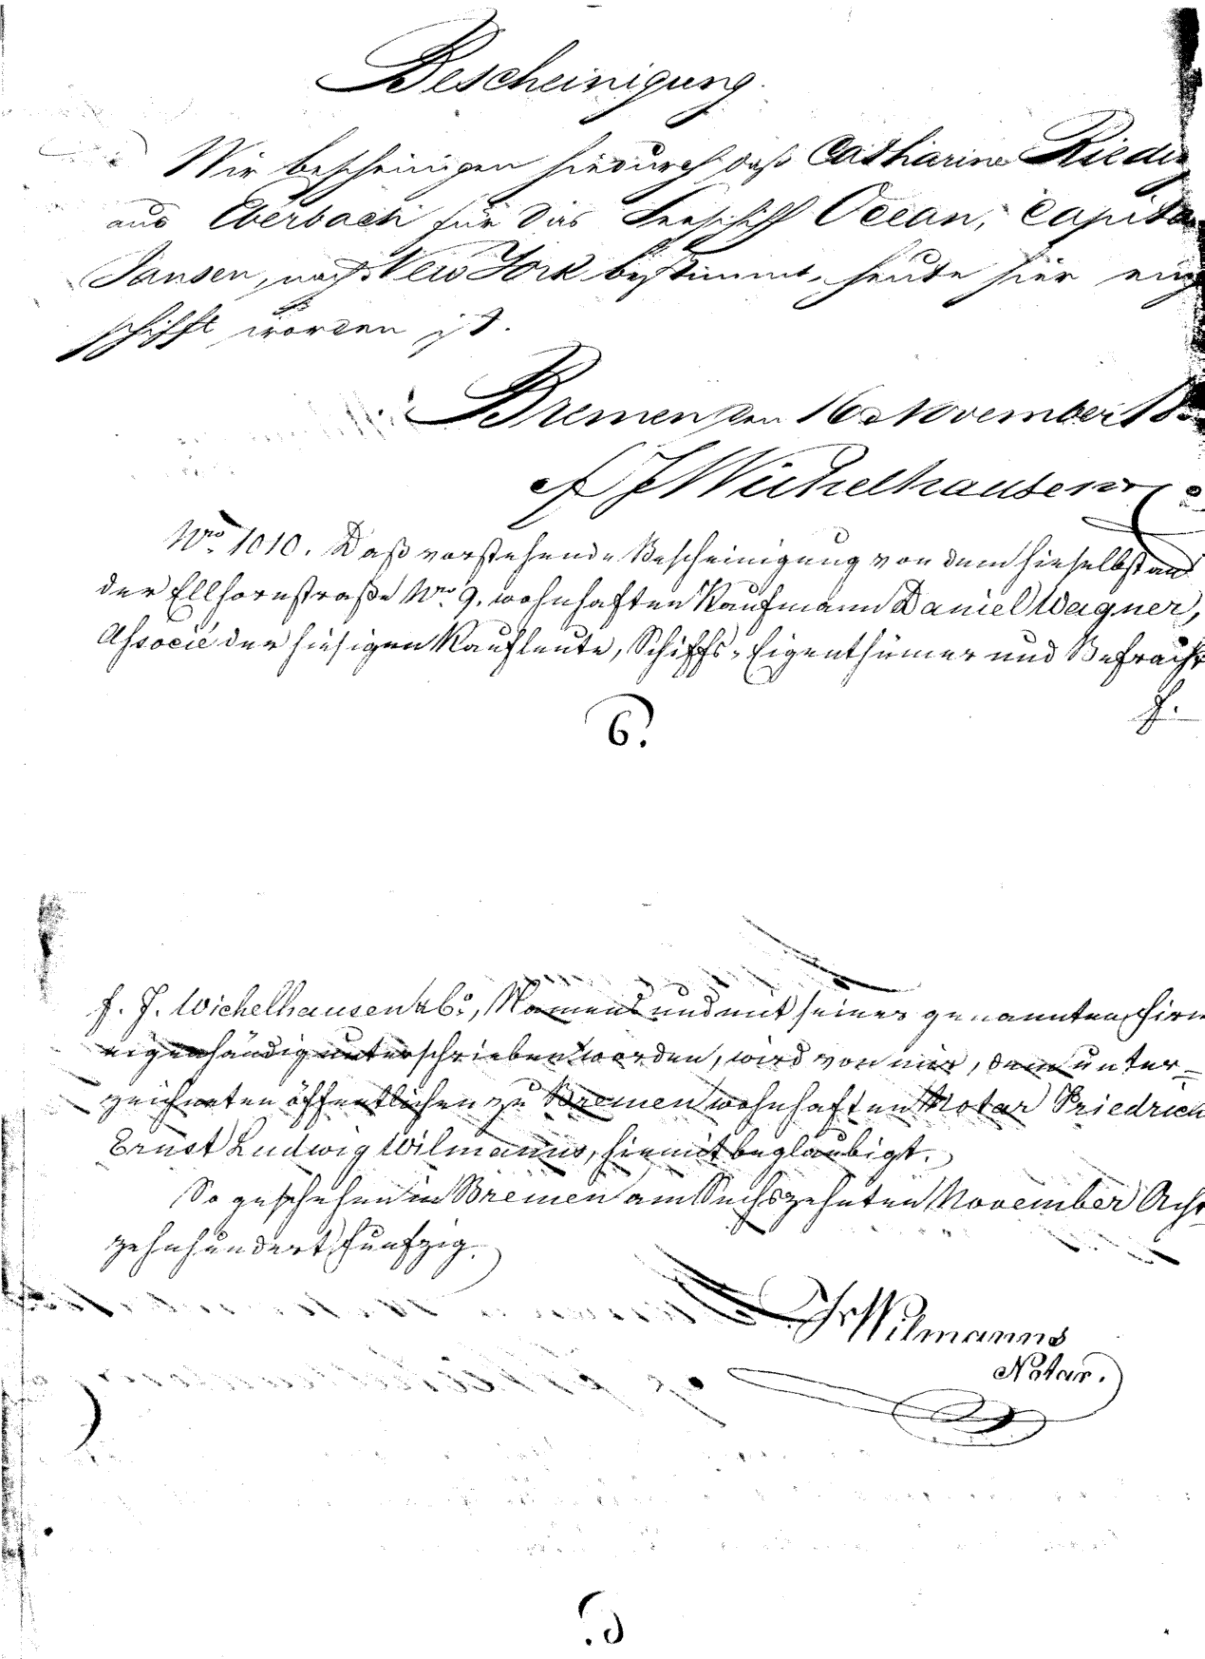 Bescheinigung.
Wir bescheinigen hiedurch daß Catharina Rieder
aus Eberbach für das Seeschiff Ocean, Capita
Jansen, nach New York bestimmt, heute hier eing
schifft worden ist.
Bremen den 16 November 18
F J Wichelhausen & Co
Nro. 1010. Daß vorstehende Bescheinigung von dem hieselbst an
der Ellhornstraße Nro. 9. wohnhaften Kaufmann Daniel Wagner,
Associé der hiesigen Kaufleute, Schiffs-Eigenthümer und Befracht
F.
6.
F. J. Wichelhausen & Co., Namens und mit seiner genannten Firm
eigenhändig unterschrieben worden, wird von mir, dem unter-
zeichneten öffentlichen zu Bremen wohnhaften Notar Friedrich
Ernst Ludwig Wilmanns, hiemit beglaubigt.
So geschehen in Bremen am Sechszehnten November Acht
zehnhundert funfzig.
Wilmanns
Notar.